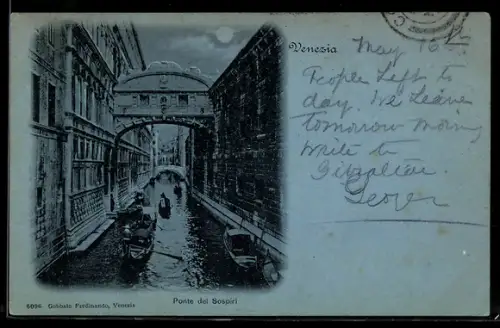 Venezia
May 16th
People left to
day. We leave
tomorrow morng
write to
Gibraltar.
6096 Gobbato Ferdinando, Venezia
Ponte dei Sospiri